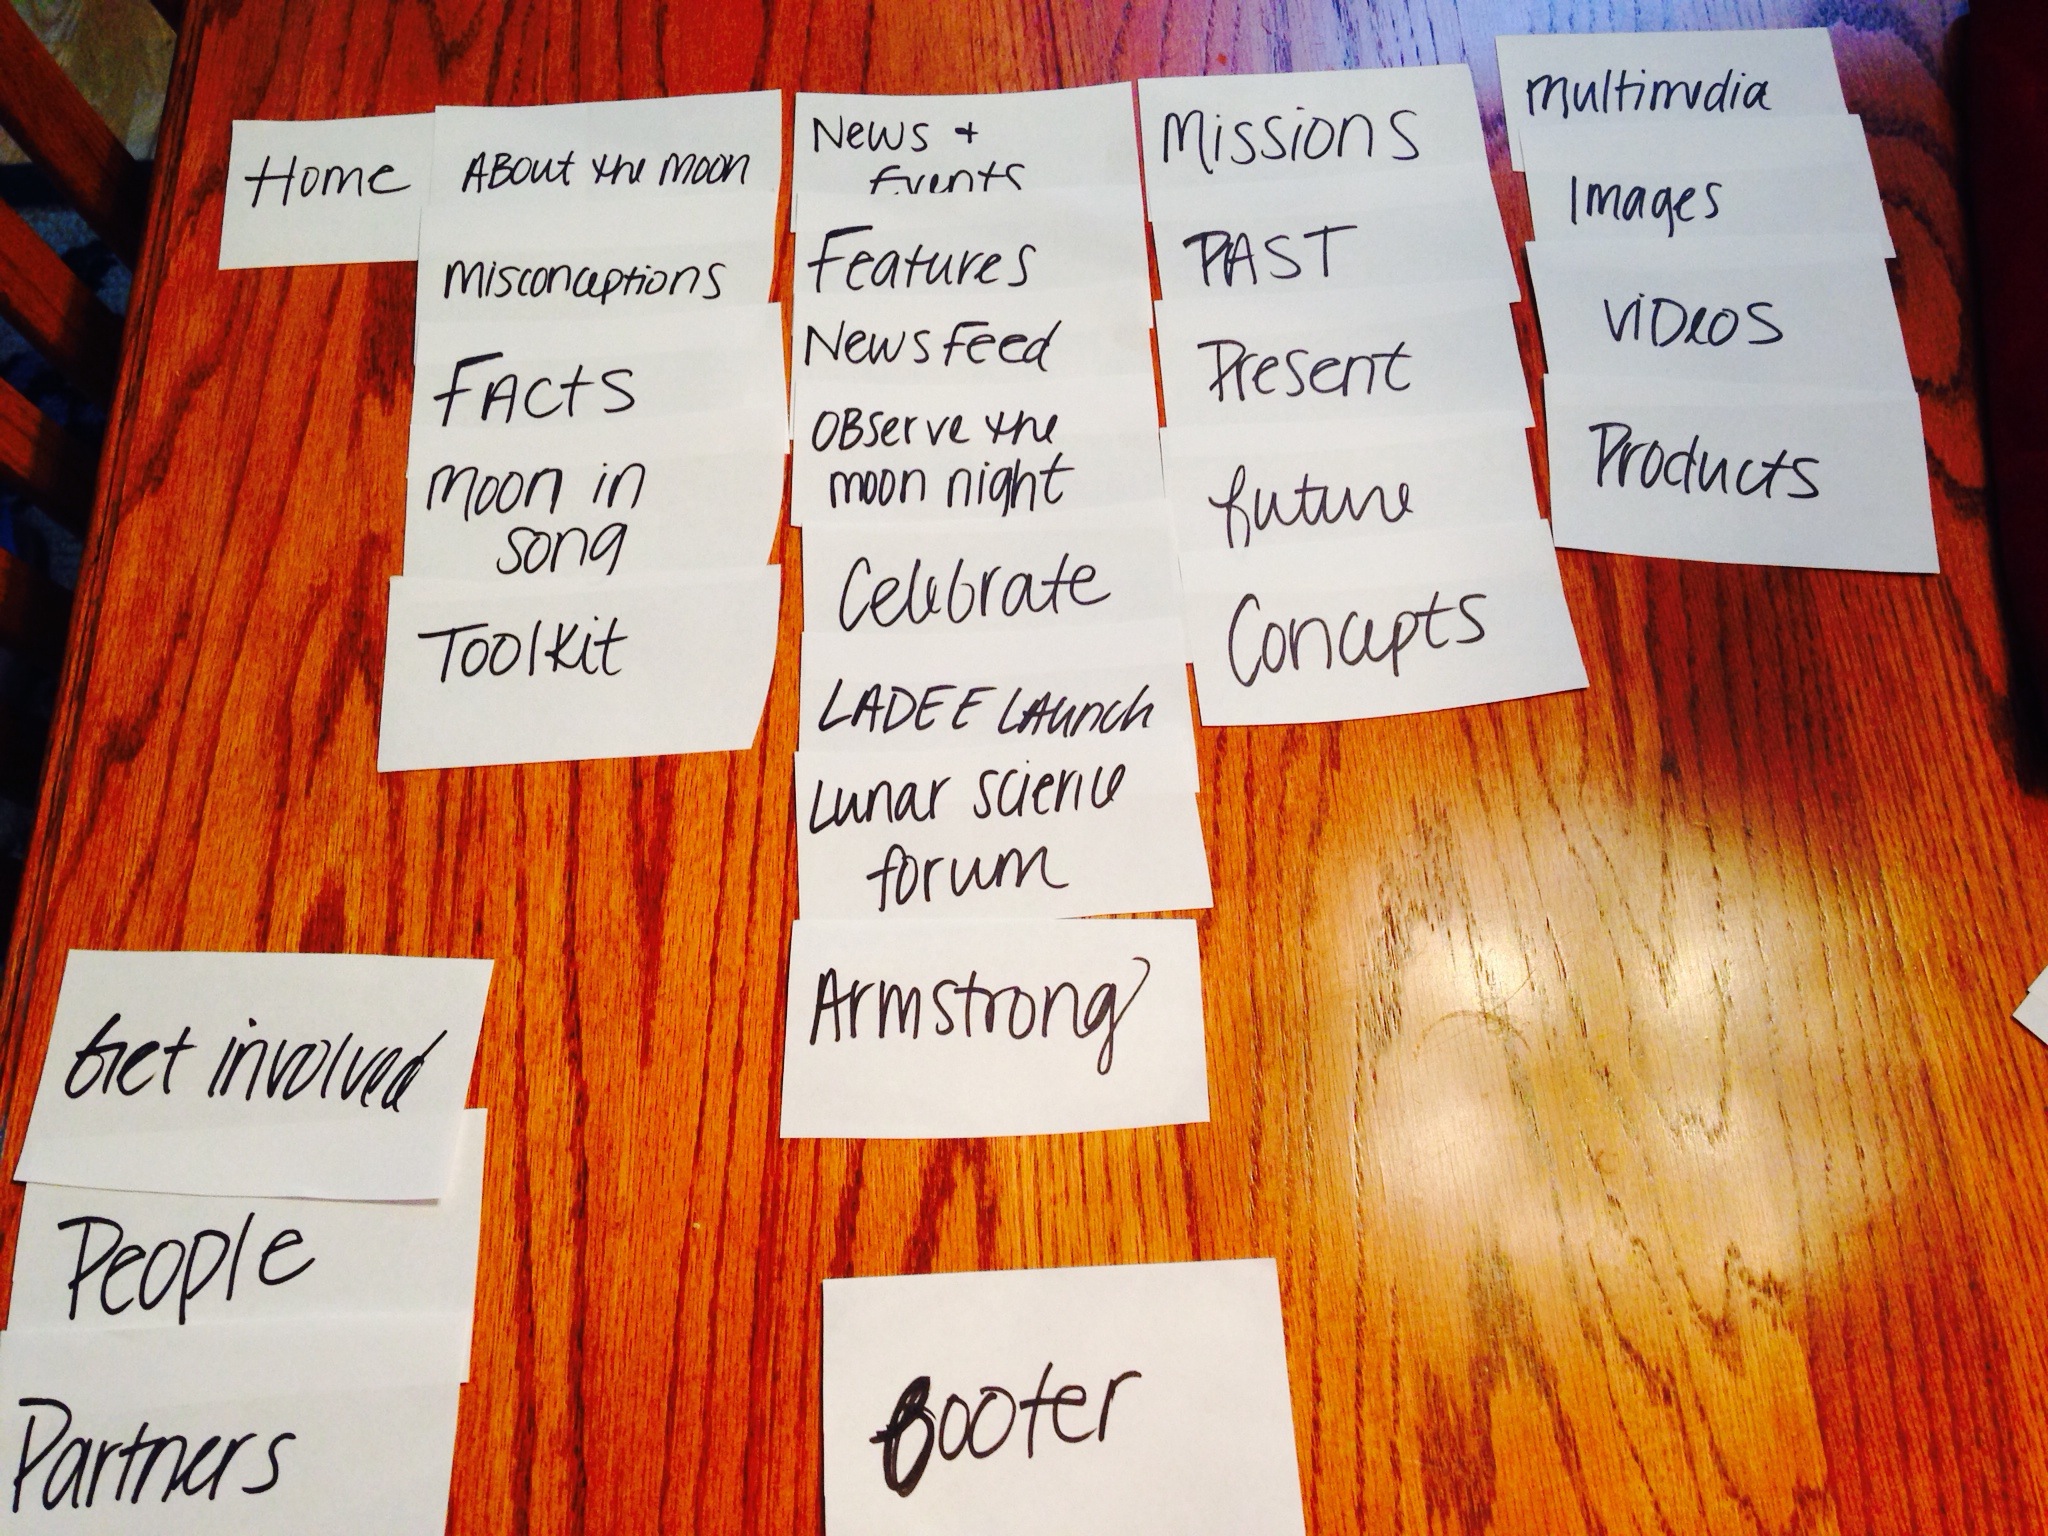 Home
About the moon
Misconceptions
Facts
Moon in
song
Toolkit
News +
Events
Features
News Feed
Observe the
moon night
Celebrate
LADEE Launch
Lunar science
forum
Armstrong
Missions
PAST
Present
future
Concepts
multimedia
Images
Videos
Products
Get involved
People
Partners
footer